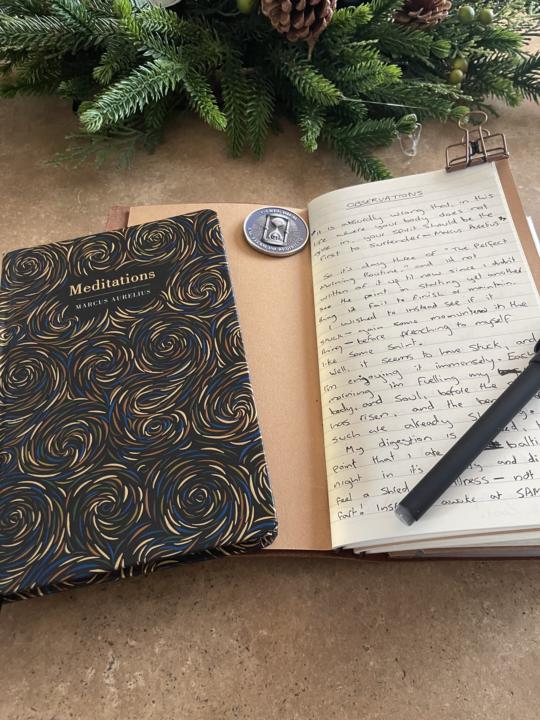 Meditations
MARCUS AURELIUS
OBSERVATIONS
"It is absurdly wrong that, in this
life where your body does not
give in, your spirit should be the
first to surrender." Marcus Aurelius
So it's day three of "The Perfect
Morning Routine". I did not
written of it up til now since I didn't
see the point in starting yet another
thing I'd fail to finish or maintain.
I wished to instead see if it
stuck – gain some momentum in the
thing – before preaching to myself
like some Saint.
Well, it seems to have stuck, and
I'm enjoying it immensely. Each
morning I'm fuelling my
body, and Soul, before the
has risen, and the
such are already
My digestion is
point that I ate
night in it's and
feel a illness – not
fart! awake at 5AM